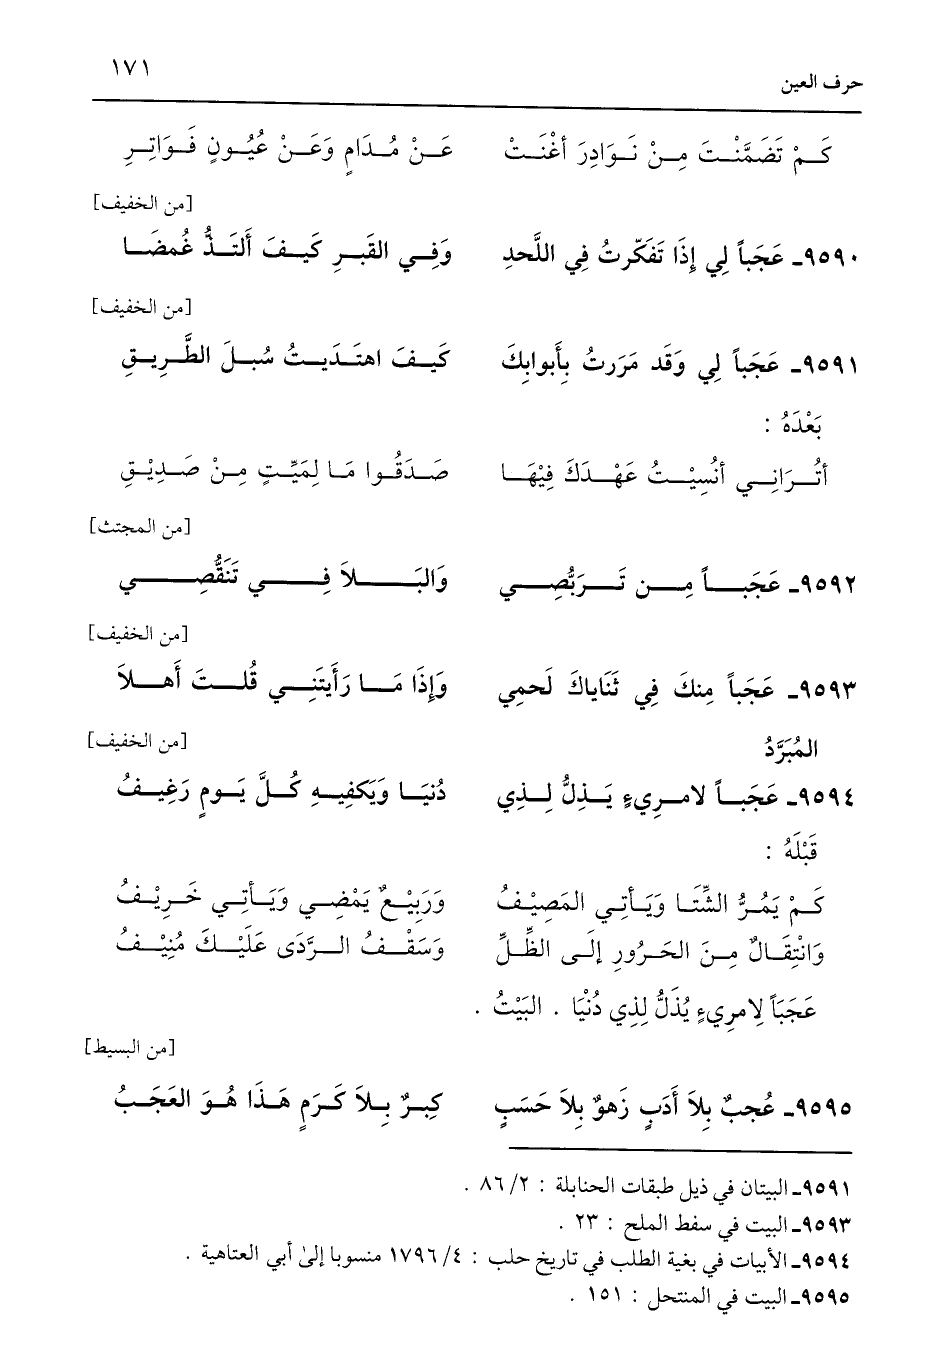 حرف العين ١٧١
كَـمْ تَضَمَّنْـتَ مِـنْ نَـوَادِرَ أغْنَـتْ عَـنْ مُـدَامٍ وَعَـنْ عُيُـونٍ فَـوَاتِـرِ
[من الخفيف]
٩٥٩٠ـ عَجَباً لِي إِذَا تَفَكّرتُ فِي اللَّحدِ وَفِـي القَبـرِ كَيـفَ أَلتَـذُّ غُمضَـا
[من الخفيف]
٩٥٩١ـ عَجَباً لِي وَقَد مَرَرتُ بِأَبوابِكَ كَيـفَ اهتَـدَيـتُ سُبـلَ الطَّـرِيـقِ
بَعْدَهُ :
أتُـرَانِـي أنْسِيْـتُ عَهْـدَكَ فِيْهَـا صَـدَقُـوا مَـا لِمَيِّـتٍ مِـنْ صَـدِيْـقِ
[من المجتث]
٩٥٩٢ـ عَجَبـاً مِـن تَـرَبُّصِـي وَالبَـلاَ فِـي تَنَقُّصِـي
[من الخفيف]
٩٥٩٣ـ عَجَباً مِنكَ فِي ثَنَاياكَ لَحمِي وَإِذَا مَـا رَأَيتَنِـي قُلـتَ أَهـلاَ
المُبَرَّدُ [من الخفيف]
٩٥٩٤ـ عَجَبـاً لامـرِيءٍ يَـذِلُّ لِـذِي دُنيَـا وَيَكفِيـهِ كُـلَّ يَـومٍ رَغِيـفُ
قَبْلَهُ :
كَمْ يَمُرُّ الشِّتَـا وَيَـأتِـي المَصِيْـفُ وَرَبِيْـعٌ يَمْضِـي وَيَـأتِي خَـرِيْـفُ
وَانْتِقَـالٌ مِـنَ الحَـرُورِ إِلَـى الظِّـلِّ وَسَقْـفُ الـرَّدَى عَلَيْـكَ مُنِيْـفُ
عَجَبَاً لِامرِيءٍ يُذَلُّ لِذِي دُنْيَا . البَيْتُ .
[من البسيط]
٩٥٩٥ـ عُجبٌ بِلاَ أَدَبٍ زَهوٌ بِلاَ حَسَبٍ كِبـرٌ بِـلاَ كَـرَمٍ هَـذَا هُـوَ العَجَـبُ
٩٥٩١ـ البيتان في ذيل طبقات الحنابلة : ٢/ ٨٦ .
٩٥٩٣ـ البيت في سفط الملح : ٢٣ .
٩٥٩٤ـ الأبيات في بغية الطلب في تاريخ حلب : ٤/ ١٧٩٦ منسوبا إلىٰ أبي العتاهية .
٩٥٩٥ـ البيت في المنتحل : ١٥١ .